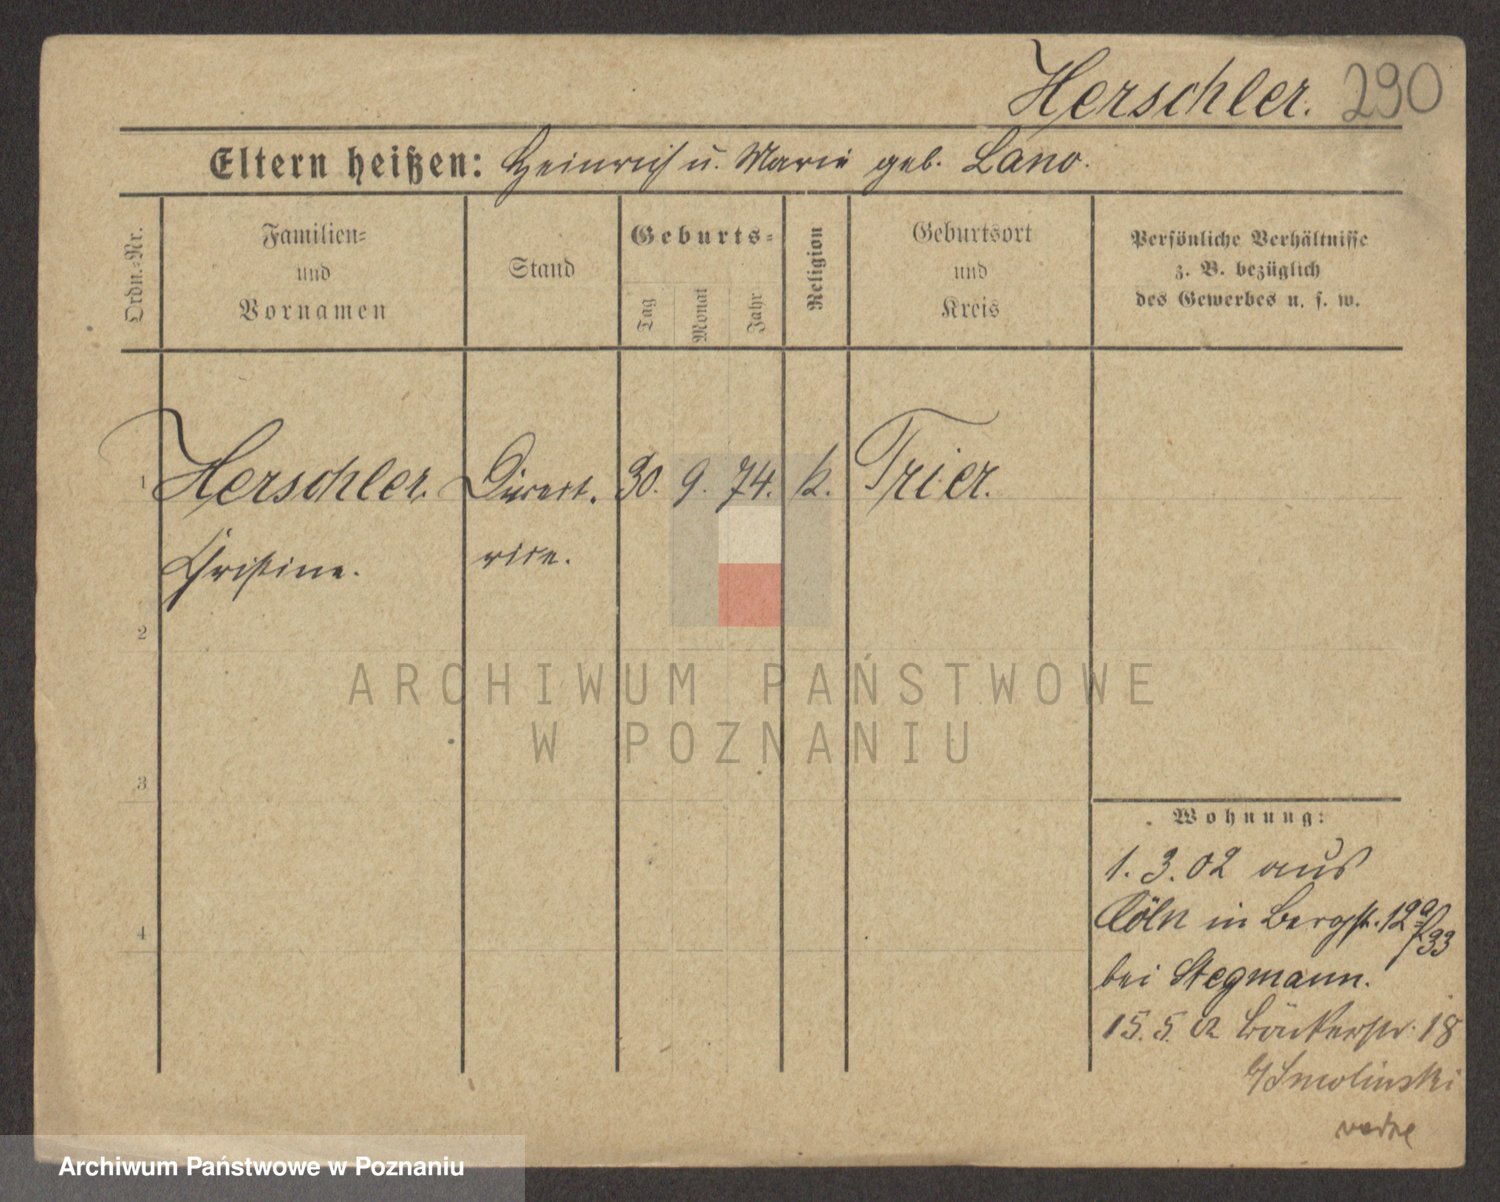 Herschler. 290
Eltern heißen: Heinrich u. Marie geb. Lano.
Ordn.-Nr.
Familien- und Vornamen
Stand
Geburts-
Tag
Monat
Jahr
Religion
Geburtsort und Kreis
Persönliche Verhältnisse
z. B. bezüglich
des Gewerbes u. s. w.
1 Herschler Direct. 30. 9. 74. k. Trier.
Christine. rice.
2
ARCHIWUM PAŃSTWOWE
W POZNANIU
3
Wohnung:
1. 3. 02 aus
Cöln in Bergstr. 12a
4
bei Stegmann.
15. 5. 02 Bäckerstr. 18
b/Smolinski
Archiwum Państwowe w Poznaniu